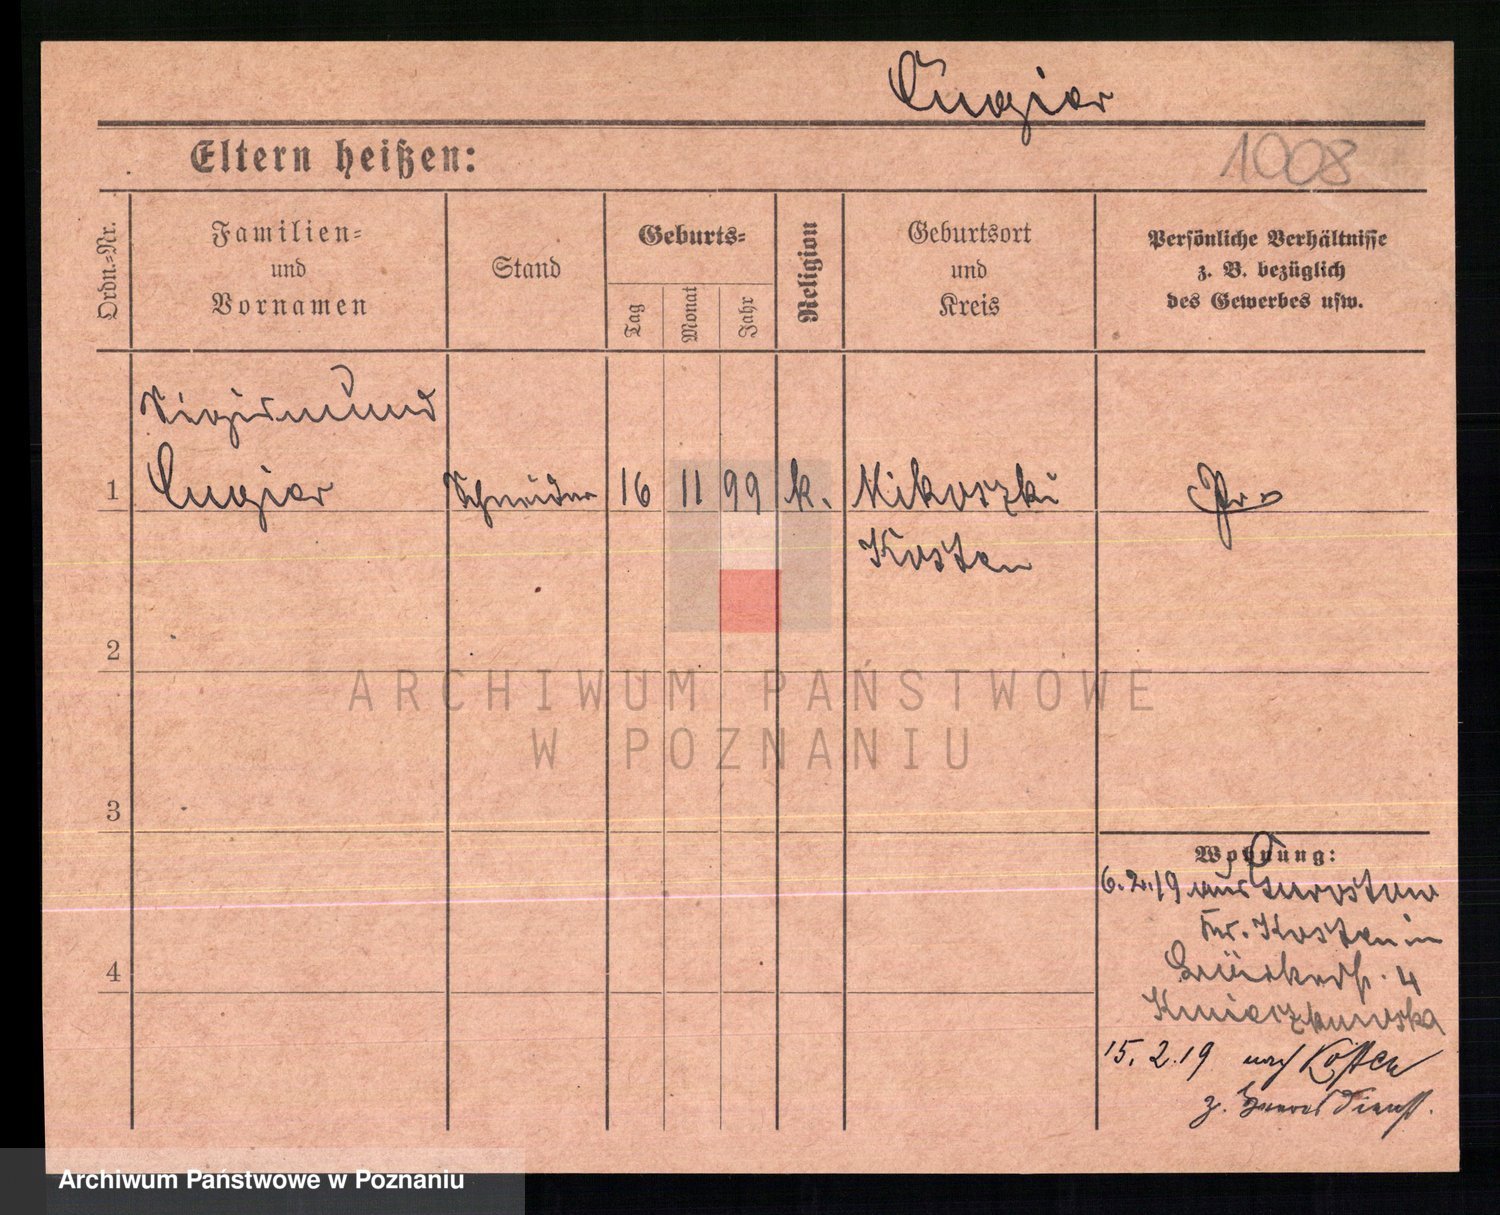 Cugier
Eltern heißen:
1008
Ordn.=Nr.
Familien=
und
Vornamen
Stand
Geburts=
Tag
Monat
Jahr
Religion
Geburtsort
und
Kreis
Persönliche Verhältnisse
z. B. bezüglich
des Gewerbes usw.
Sigismund
1 Cugier Schneider 16 11 99 k. Mikoszki Pr
Kosten
2
3
4
Wohnung:
6.2.19 aus
Kr. Kosten in
4
15.2.19 nach Kosten
z. Heeres Dienst.
ARCHIWUM PAŃSTWOWE
W POZNANIU
Archiwum Państwowe w Poznaniu